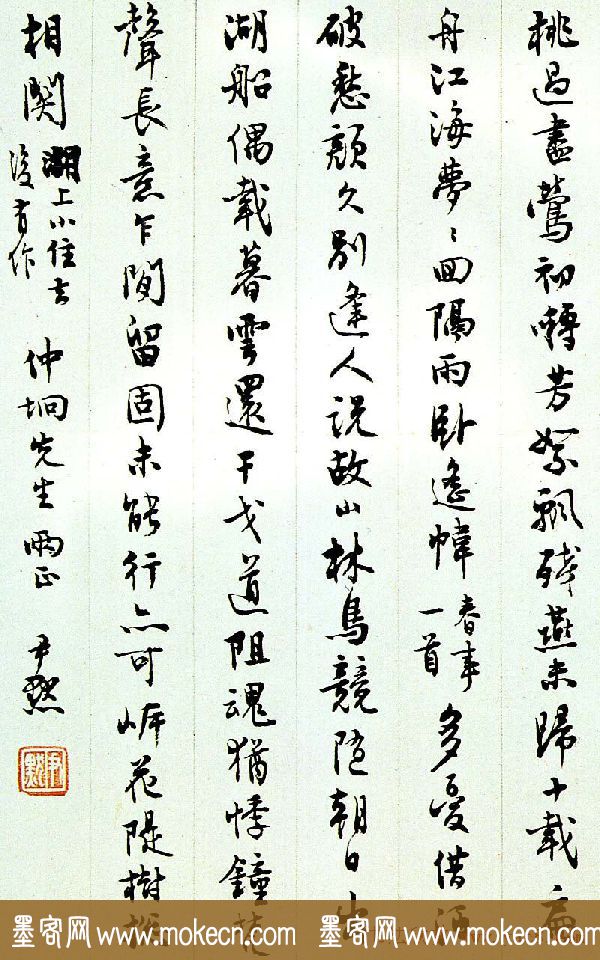 桃過盡鶯初囀芳絮飄殘燕未歸十載扁
舟江海夢〻回隔雨卧遙幃春事一首多憂借酒
破愁顏久別逢人説故山林鳥競隨朝日出
湖船偶載暮雲還干戈道阻魂猶悸鐘梵
聲長意乍閒留固未能行亦可岸花隄樹
相関湖上小住去
後有作
仲坰先生兩正
尹默
尹默
墨客网 www.mokecn.com 墨客网 www.mokecn.com